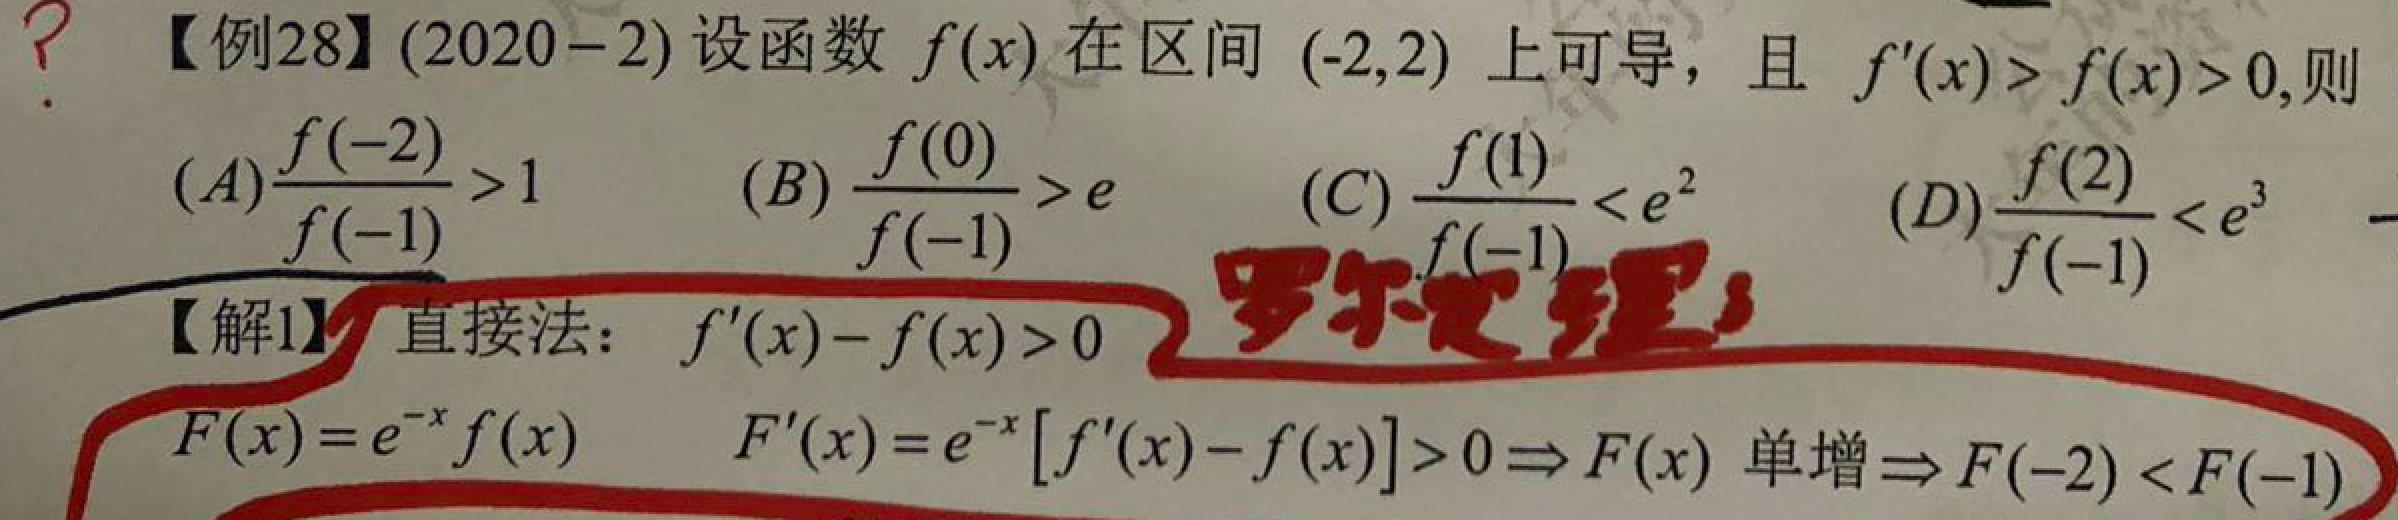 ?
【例28】(2020-2) 设函数 f(x) 在区间 (-2,2) 上可导，且 f'(x) > f(x) > 0,则
(A) f(-2)/f(-1) > 1 (B) f(0)/f(-1) > e (C) f(1)/f(-1) < e² (D) f(2)/f(-1) < e³
罗尔定理
【解1】 直接法： f'(x) - f(x) > 0
F(x) = e⁻ˣ f(x) F'(x) = e⁻ˣ [f'(x) - f(x)] > 0 ⇒ F(x) 单增 ⇒ F(-2) < F(-1)